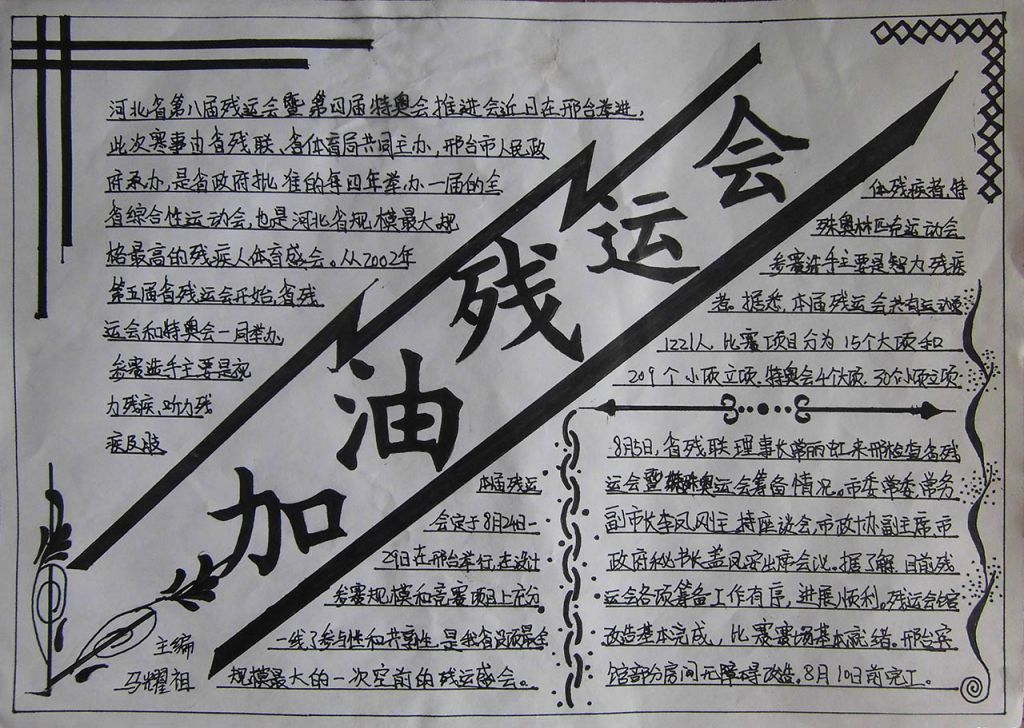 加油残运会
河北省第八届残运会暨第四届特奥会推进会近日在邢台举进,
此次赛事由省残联、省体育局共同主办,邢台市人民政
府承办,是省政府批准的每四年举办一届的全
省综合性运动会,也是河北省规模最大规
格最高的残疾人体育盛会。从2002年
第五届省残运会开始,省残
运会和特奥会一同举办,
参赛选手主要是视
力残疾、听力残
疾及肢
体残疾者,特
殊奥林匹克运动会
参赛选手主要是智力残疾
者。据悉,本届残运会共有运动员
1221人,比赛项目分为15个大项和
209个小项立项.特奥会4个大项.30个小项立项
本届残运
会定于8月24日—
29日在邢台举行,在设计
参赛规模和竞赛项目上充分
一线了参与性和共享性,是我省设项最全
规模最大的一次空前的残运盛会。
8月5日,省残联理事长常丽虹来邢检查省残
运会暨特殊奥运会筹备情况。市委常委、常务
副市长李凤刚主持座谈会,市政协副主席、市
政府秘书长盖凤安出席会议。据了解,目前残
运会各项筹备工作有序,进展顺利。残运会馆
改造基本完成,比赛赛场基本就绪。邢台宾
馆部分房间无障碍改造,8月10日前完工。
主编
马耀祖